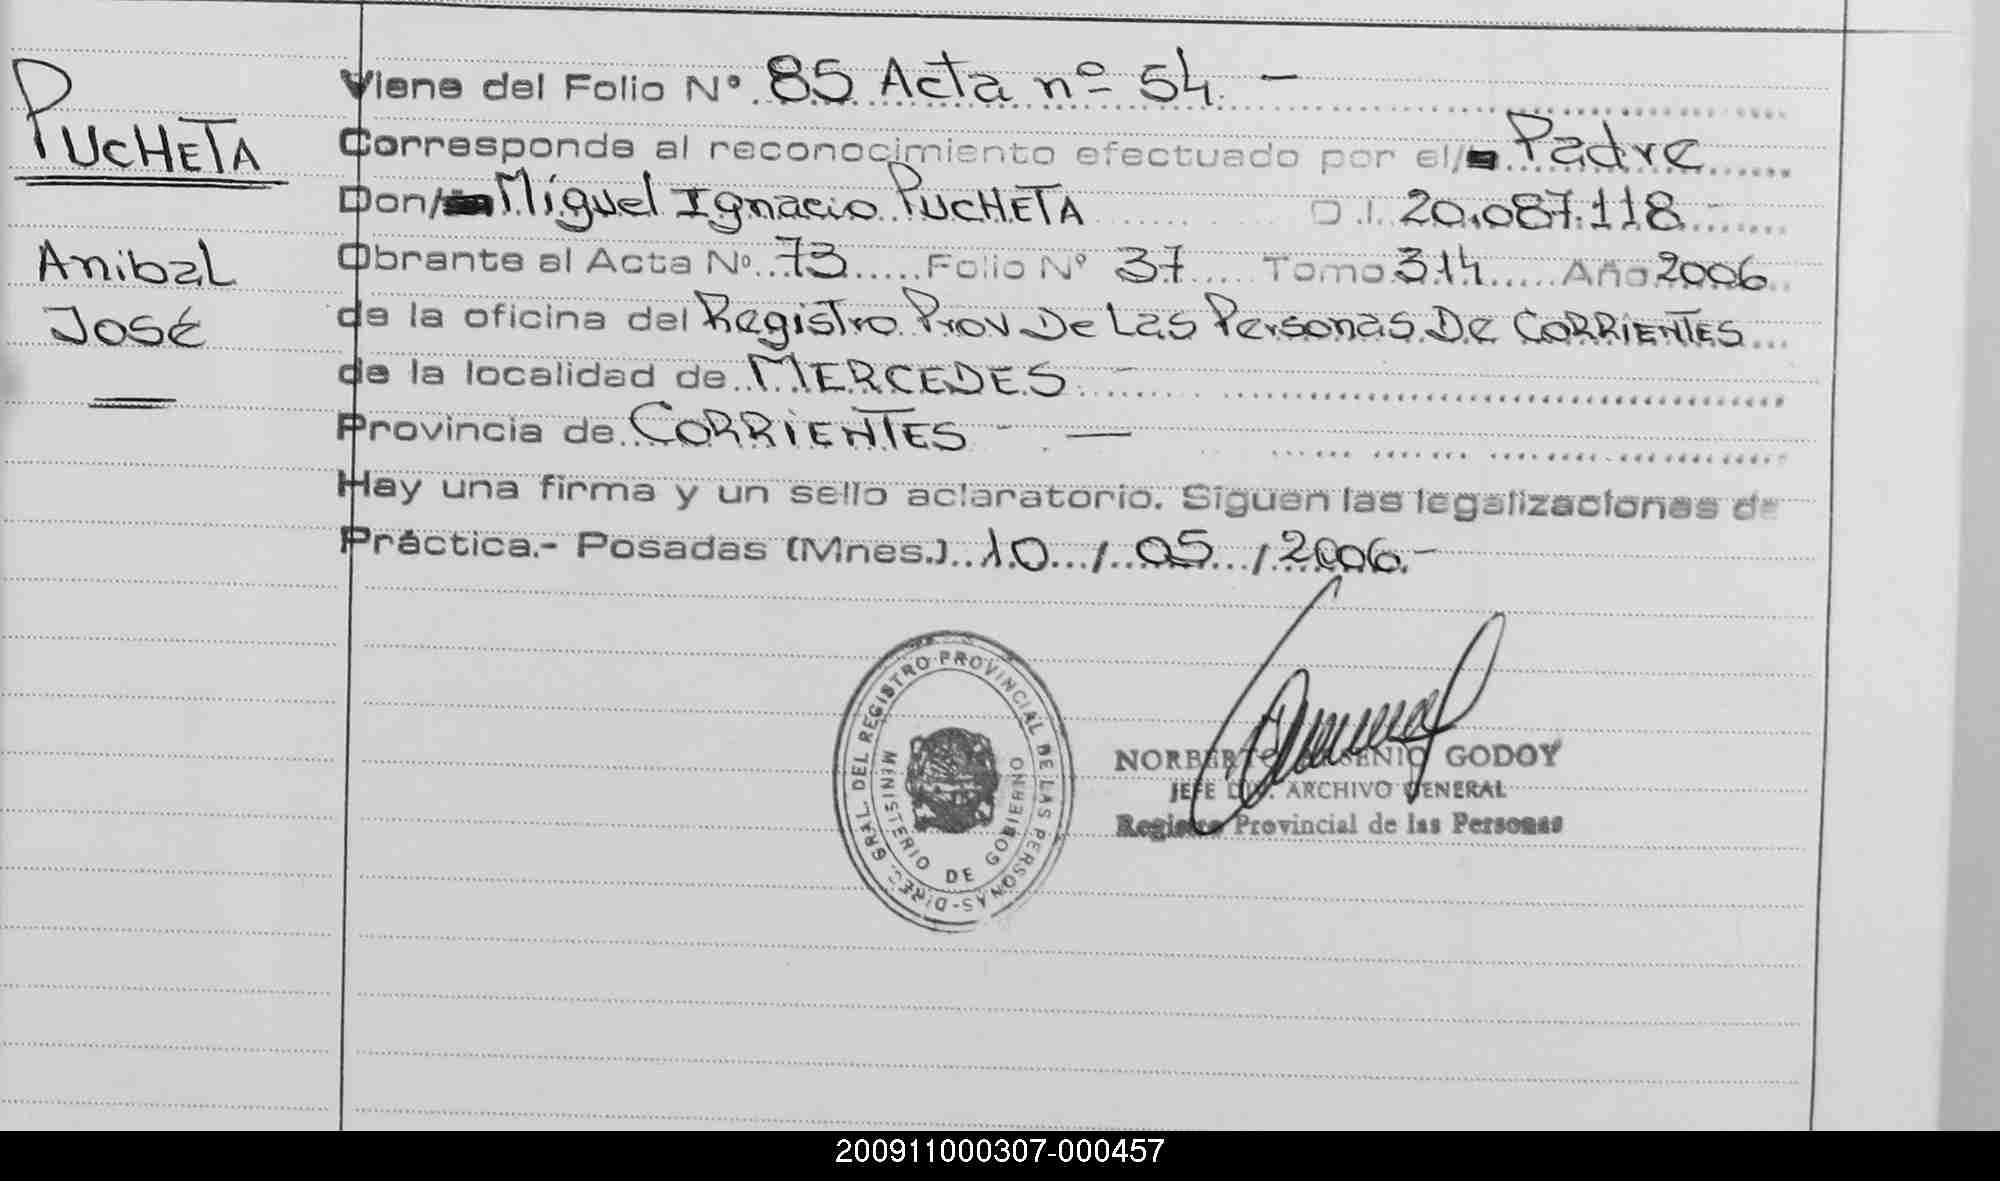 PUCHETA
Anibal
José
Viene del Folio Nº 85 Acta nº 54. —
Corresponde al reconocimiento efectuado por el/ Padre
Don/ Miguel Ignacio PUCHETA D.I. 20.087.118 -
Obrante al Acta Nº 73 Folio Nº 37 Tomo 314 Año 2006
de la oficina del Registro Prov De Las Personas De CORRIENTES
de la localidad de MERCEDES -
Provincia de CORRIENTES - —
Hay una firma y un sello aclaratorio. Siguen las legalizaciones de
Práctica.- Posadas (Mnes.) 10 / 05 / 2006.-
DIREC. GRAL. DEL REGISTRO PROVINCIAL DE LAS PERSONAS-
MINISTERIO DE GOBIERNO
NORBERTO GODOY
JEFE DIV. ARCHIVO GENERAL
Registro Provincial de las Personas
200911000307-000457